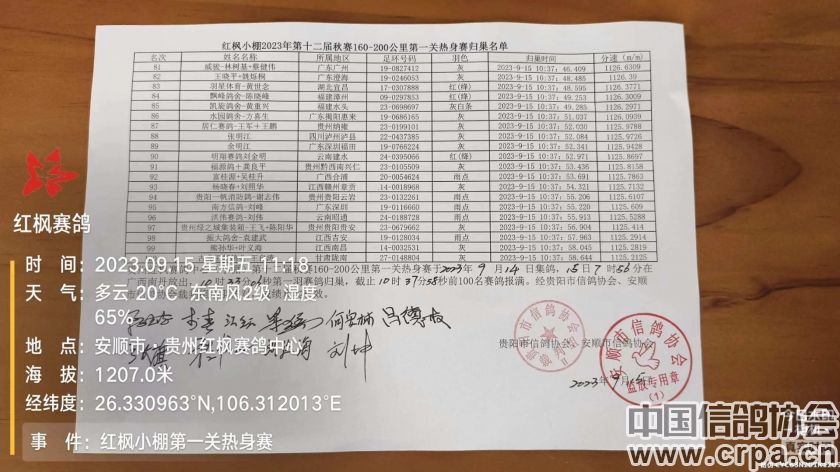 红枫小棚2023年第十二届秋赛160-200公里第一关热身赛归巢名单
名次 姓名名称 所属地区 足环号码 羽色 归巢时间 分速 (m/m)
81 威骏-林树基+蔡健伟 广东广州 19-0827412 灰 2023-9-15 10:37: 46.409 1126.6309
82 王晓平+姚烁桐 广东澄海 19-0246053 灰 2023-9-15 10:37: 48.485 1126.39
83 羽星体育-黄世念 湖北宜昌 17-0307888 红(绛) 2023-9-15 10:37: 48.595 1126.3771
84 飘峰鸽舍-陈晓峰 福建漳州 09-0297853 红(绛) 2023-9-15 10:37: 49.253 1126.3009
85 凯旋鸽舍-黄重兴 福建水头 23-0698697 灰白条 2023-9-15 10:37: 49.285 1126.2971
86 水园鸽舍-方喜生 广东揭阳惠来 19-0686165 灰 2023-9-15 10:37: 51.037 1126.0939
87 居仁赛鸽-王军+王鹏 贵州纳雍 23-0199101 灰 2023-9-15 10:37: 52.030 1125.9788
88 张明江 四川泸州泸县 22-0437385 灰 2023-9-15 10:37: 52.084 1125.9725
89 余明江 广东深圳福田 19-0766224 灰 2023-9-15 10:37: 52.341 1125.9427
90 明翔赛鸽刘金明 云南建水 24-0395066 红(绛) 2023-9-15 10:37: 52.971 1125.8697
91 福源鸽+龚良平 贵州黔西南兴仁 23-0105509 灰 2023-9-15 10:37: 53.436 1125.8158
92 富桂源+吴桂升 广西合浦 20-0054624 雨点 2023-9-15 10:37: 53.691 1125.7863
93 杨晓春+刘照华 江西赣州章贡 14-0018968 灰 2023-9-15 10:37: 54.321 1125.7132
94 贵阳一帆消防鸽-谢志伟 贵州贵阳云岩 23-0131232 雨点 2023-9-15 10:37: 55.208 1125.6104
95 南方信鸽-刘峰 广东深圳 19-0116660 雨点 2023-9-15 10:37: 55.220 1125.609
96 洪伟赛鸽-刘伟 云南昭通 24-0188728 雨点 2023-9-15 10:37: 55.993 1125.5194
97 贵州绿之城集装箱-王飞+陈阳华 贵州贵阳 23-0163711 灰 2023-9-15 10:37: 56.260 1125.4885
98 振大鸽舍-袁建武 江西吉安 19-0128014 雨点 2023-9-15 10:37: 57.613 1125.3317
99 熊孙华+叶文海 江西南昌 14-0032531 灰 2023-9-15 10:37: 58.045 1125.2819
甘肃陇南 灰 2023-9-15 10:37: 58.644 1125.2123
160-200公里第一关热身赛于2023年9月14日集鸽，15日7时56分在
广西南丹放出，10时33分06秒第一羽赛鸽归巢，截止10时37分58秒前100名赛鸽报满。经贵阳市信鸽协会、安顺
何安林 吕德政
刘坤
贵阳市信鸽协会、安顺市信鸽协会
2023年9月15日
安顺市信鸽协会
监放专用章
(1)
红枫赛鸽
时 间：2023.09.15 星期五 11:18
天 气：多云 20℃ 东南风2级 湿度
65%
地 点：安顺市·贵州红枫赛鸽中心
海 拔：1207.0米
经纬度：26.330963°N,106.312013°E
事 件：红枫小棚第一关热身赛
中国信鸽协会
www.crpa.cn